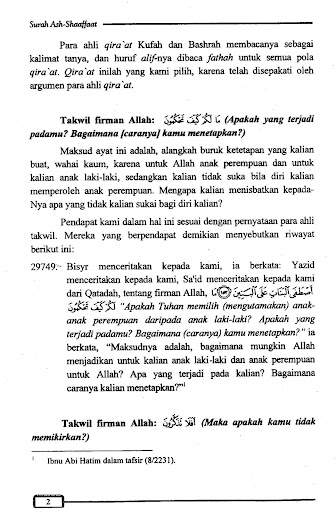 Surah Ash-Shaaffaat
Para ahli qira`at Kufah dan Bashrah membacanya sebagai
kalimat tanya, dan huruf alif-nya dibaca fathah untuk semua pola
qira`at. Qira`at inilah yang kami pilih, karena telah disepakati oleh
argumen para ahli qira`at.
Takwil firman Allah: مَا لَكُمْ كَيْفَ تَحْكُمُونَ (Apakah yang terjadi
padamu? Bagaimana [caranya] kamu menetapkan?)
Maksud ayat ini adalah, alangkah buruk ketetapan yang kalian
buat, wahai kaum, karena untuk Allah anak perempuan dan untuk
kalian anak laki-laki, sedangkan kalian tidak suka bila diri kalian
memperoleh anak perempuan. Mengapa kalian menisbatkan kepada-
Nya apa yang tidak kalian sukai bagi diri kalian?
Pendapat kami dalam hal ini sesuai dengan pernyataan para ahli
takwil. Mereka yang berpendapat demikian menyebutkan riwayat
berikut ini:
29749. Bisyr menceritakan kepada kami, ia berkata: Yazid
menceritakan kepada kami, Sa'id menceritakan kepada kami
dari Qatadah, tentang firman Allah, أَصْطَفَى الْبَنَاتِ عَلَى الْبَنِينَ مَا
لَكُمْ كَيْفَ تَحْكُمُونَ "Apakah Tuhan memilih (mengutamakan) anak-
anak perempuan daripada anak laki-laki? Apakah yang
terjadi padamu? Bagaimana (caranya) kamu menetapkan?" ia
berkata, "Maksudnya adalah, bagaimana mungkin Allah
menjadikan untuk kalian anak laki-laki dan anak perempuan
untuk Allah? Apa yang terjadi pada kalian? Bagaimana
caranya kalian menetapkan?"¹
Takwil firman Allah: أَفَلَا تَذَكَّرُونَ (Maka apakah kamu tidak
memikirkan?)
¹ Ibnu Abi Hatim dalam tafsir (8/2231).
2